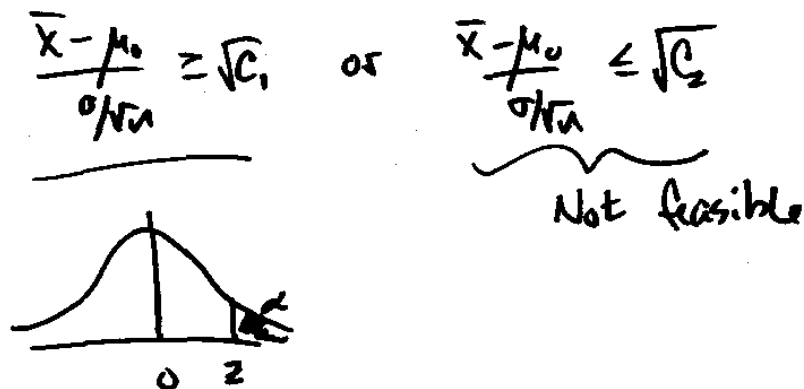 x̄ - μ₀ / σ/√n ≥ √C₁ or x̄ - μ₀ / σ/√n ≤ √C₂
Not feasible
α
0 z